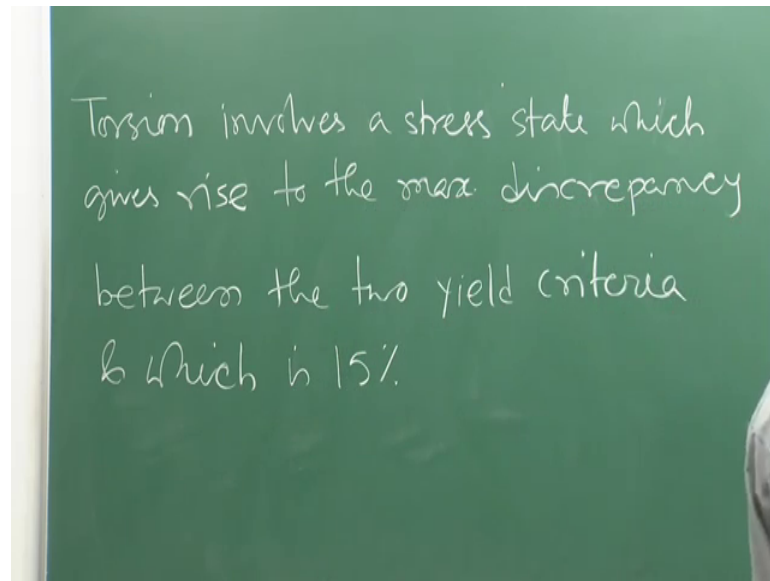 Torsion involves a stress state which
gives rise to the max. discrepancy
between the two yield criteria
& which is 15%